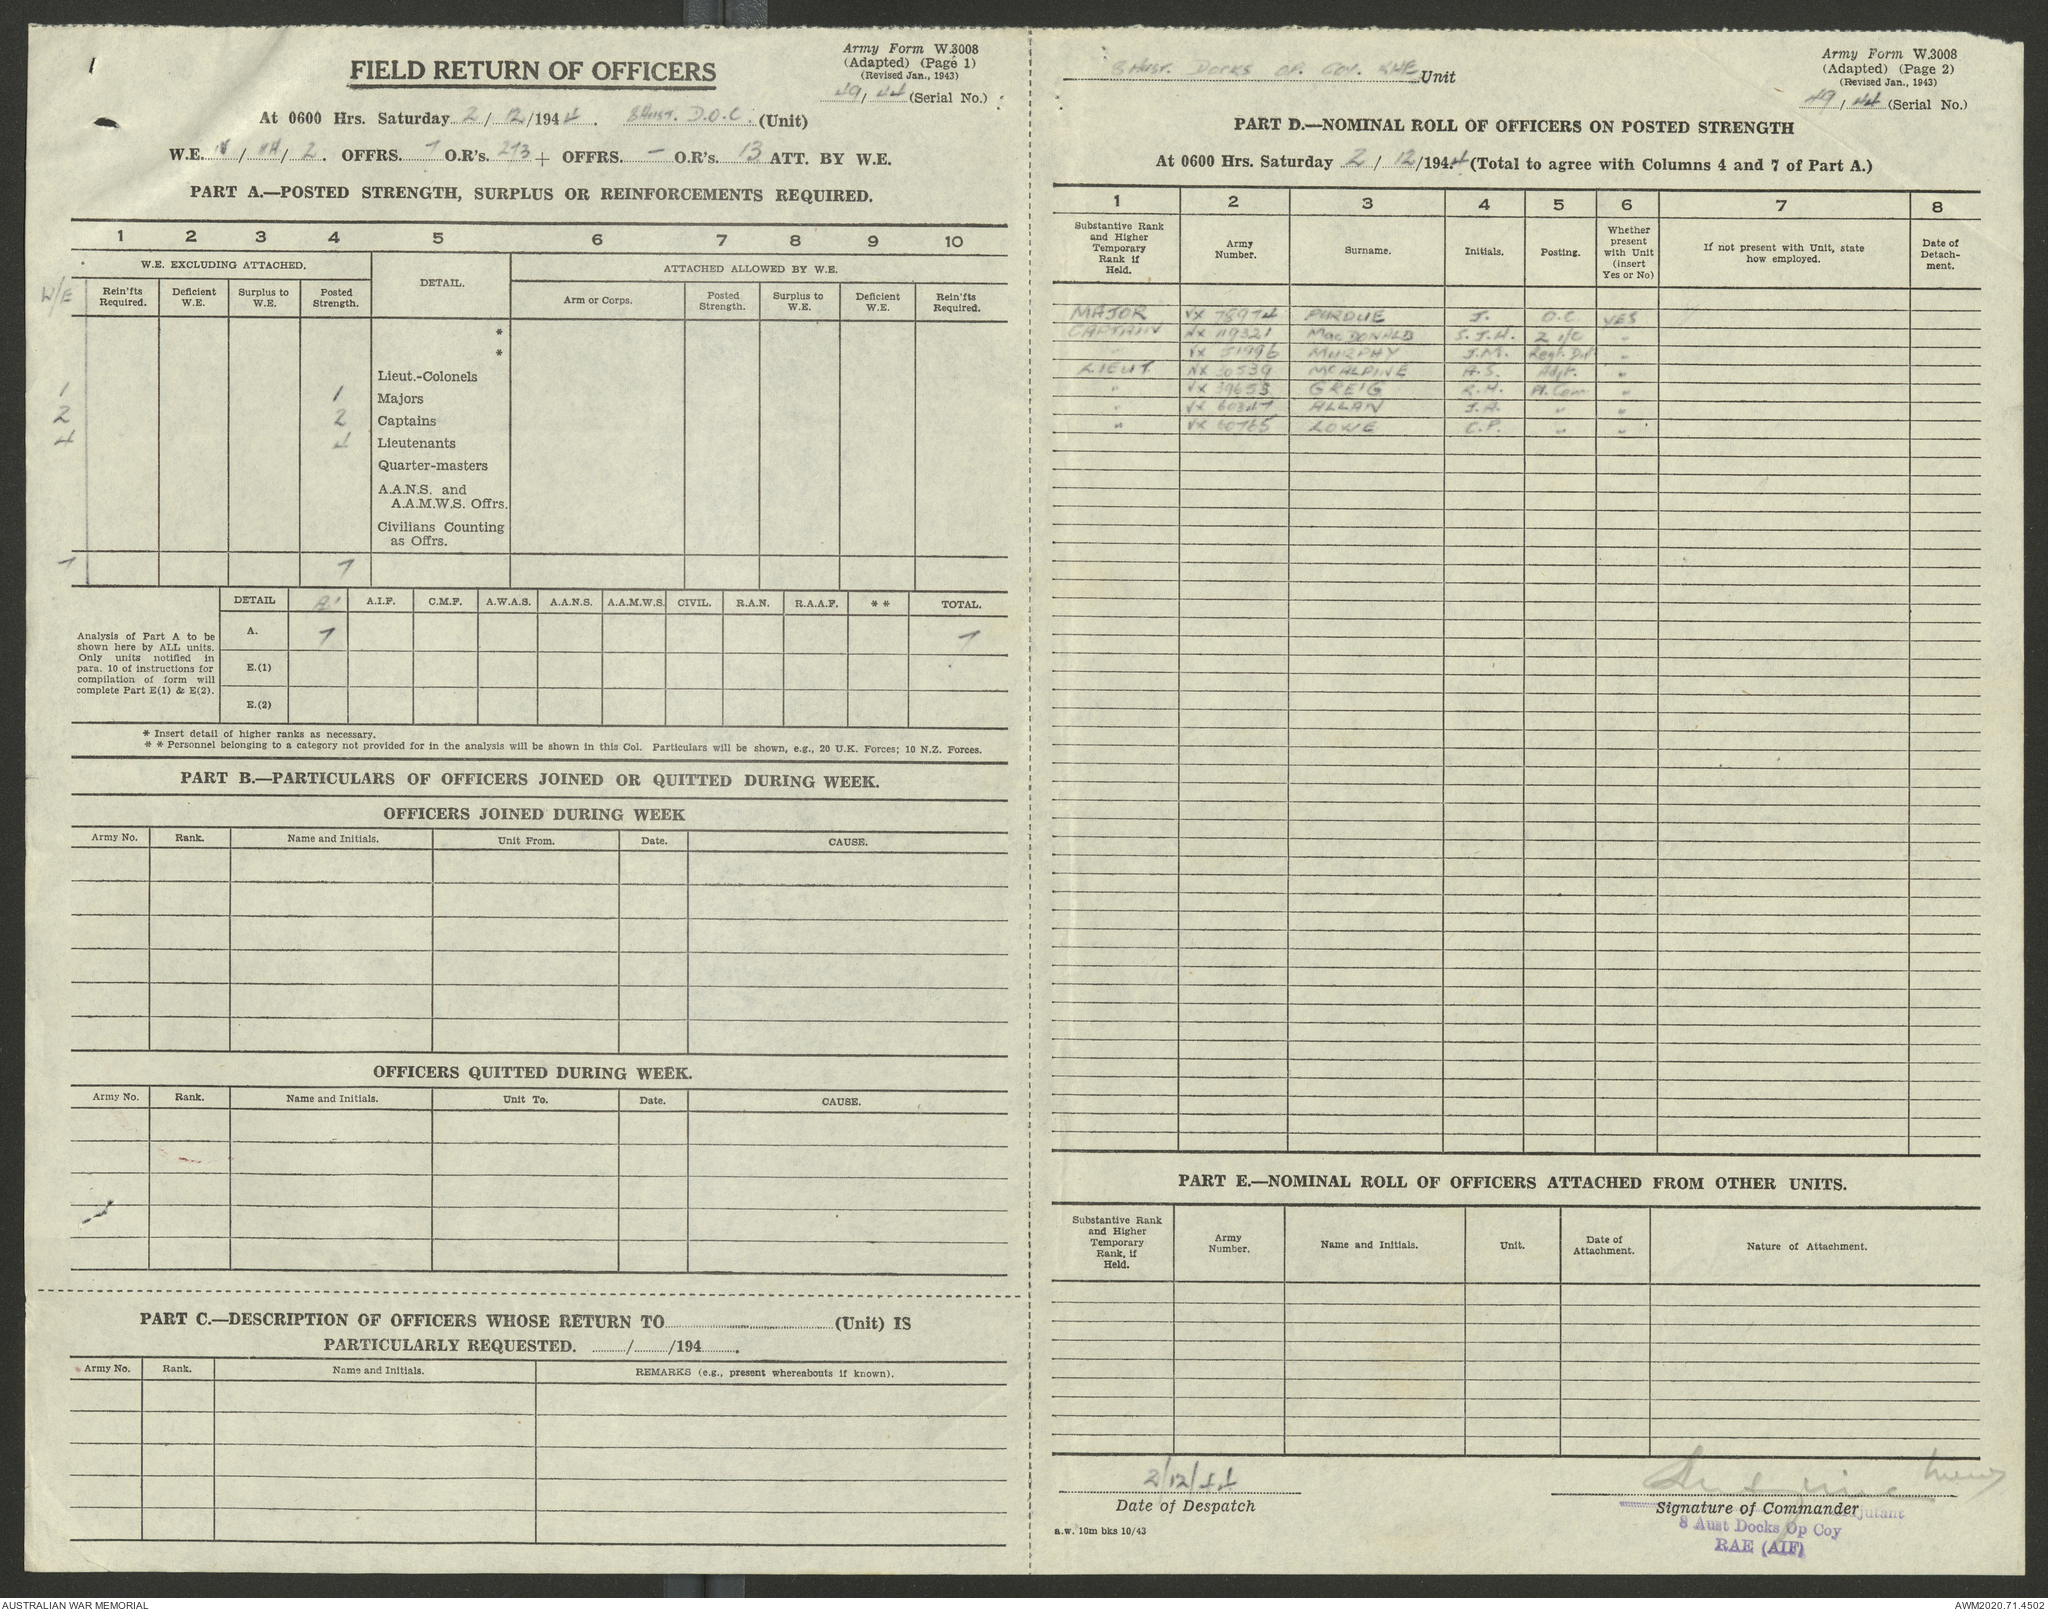 Army Form W.3008
(Adapted) (Page 1)
(Revised Jan., 1943)
49/44 (Serial No.)
FIELD RETURN OF OFFICERS
At 0600 Hrs. Saturday 2/12/1944. 8 Aust. D.O.C. (Unit)
W.E. / / 2. OFFRS. 7 O.R's. 273 + OFFRS. - O.R's. 13 ATT. BY W.E.
PART A.—POSTED STRENGTH, SURPLUS OR REINFORCEMENTS REQUIRED.
1 2 3 4 5 6 7 8 9 10
W.E. EXCLUDING ATTACHED. DETAIL. ATTACHED ALLOWED BY W.E.
W/E Rein'fts Required. Deficient W.E. Surplus to W.E. Posted Strength. Arm or Corps. Posted Strength. Surplus to W.E. Deficient W.E. Rein'fts Required.
*
*
Lieut.-Colonels
1 1 Majors
2 2 Captains
4 4 Lieutenants
Quarter-masters
A.A.N.S. and
A.A.M.W.S. Offrs.
Civilians Counting
as Offrs.
7 7
DETAIL A.I.F. C.M.F. A.W.A.S. A.A.N.S. A.A.M.W.S. CIVIL. R.A.N. R.A.A.F. ** TOTAL.
A. 7 7
E.(1)
E.(2)
Analysis of Part A to be
shown here by ALL units.
Only units notified in
para. 10 of instructions for
compilation of form will
complete Part E(1) & E(2).
* Insert detail of higher ranks as necessary.
** Personnel belonging to a category not provided for in the analysis will be shown in this Col. Particulars will be shown, e.g., 20 U.K. Forces; 10 N.Z. Forces.
PART B.—PARTICULARS OF OFFICERS JOINED OR QUITTED DURING WEEK.
OFFICERS JOINED DURING WEEK
Army No. Rank. Name and Initials. Unit From. Date. CAUSE.
OFFICERS QUITTED DURING WEEK.
Army No. Rank. Name and Initials. Unit To. Date. CAUSE.
PART C.—DESCRIPTION OF OFFICERS WHOSE RETURN TO (Unit) IS
PARTICULARLY REQUESTED. / /194 .
Army No. Rank. Name and Initials. REMARKS (e.g., present whereabouts if known).
8 Aust. Docks Op. Coy. RAE Unit
Army Form W.3008
(Adapted) (Page 2)
(Revised Jan., 1943)
49/44 (Serial No.)
PART D.—NOMINAL ROLL OF OFFICERS ON POSTED STRENGTH
At 0600 Hrs. Saturday 2/12/1944 (Total to agree with Columns 4 and 7 of Part A.)
1 2 3 4 5 6 7 8
Substantive Rank and Higher Temporary Rank if Held. Army Number. Surname. Initials. Posting. Whether present with Unit (insert Yes or No) If not present with Unit, state how employed. Date of Detachment.
MAJOR VX 78974 PURDUE J. O.C. YES
CAPTAIN NX 119321 MacDONALD S.J.H. 2 i/c "
" VX 51996 MURPHY J.M. Regt. Dut "
LIEUT NX 30539 McALPINE A.S. Adjt. "
" VX 39653 GREIG R.H. Pl. Com "
" VX 60347 ALLAN J.A. " "
" VX 60765 LOWE C.P. " "
PART E.—NOMINAL ROLL OF OFFICERS ATTACHED FROM OTHER UNITS.
Substantive Rank and Higher Temporary Rank, if Held. Army Number. Name and Initials. Unit. Date of Attachment. Nature of Attachment.
2/12/44
Date of Despatch
Signature of Commander
Adjutant
8 Aust Docks Op Coy
RAE (AIF)
a.w. 10m bks 10/43
AUSTRALIAN WAR MEMORIAL
AWM2020.71.4502